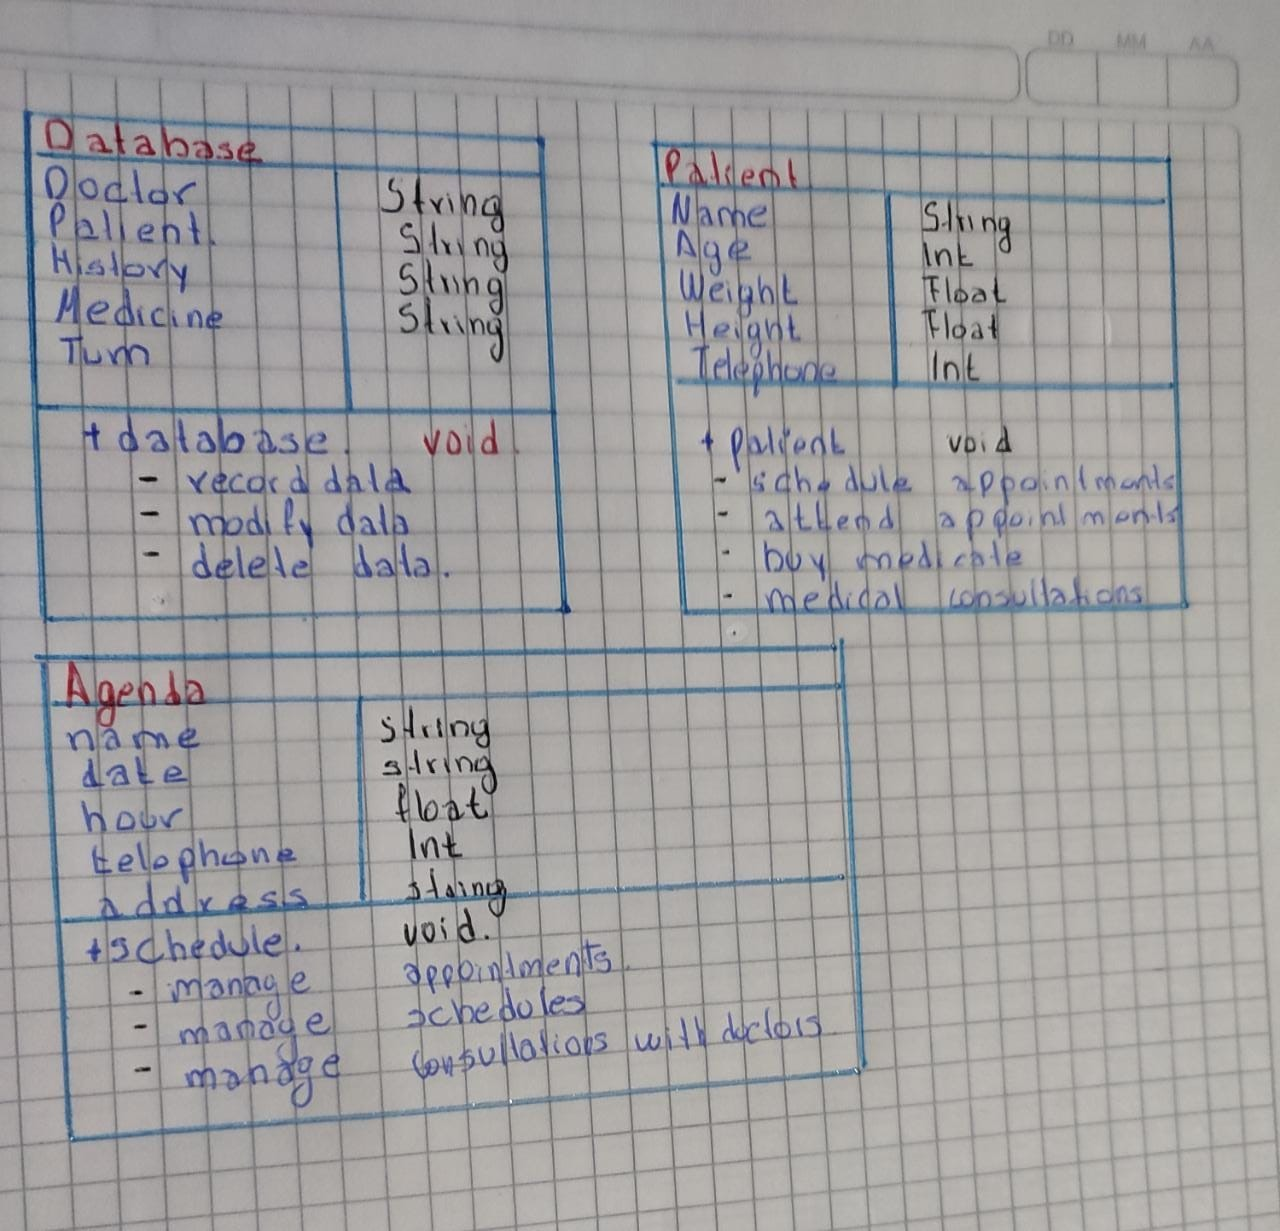 DD MM AA
Database
Doctor String
Patient. String
History String
Medicine String
Turn
+ database. void.
- record data
- modify data
- delete data.
Patient
Name String
Age Int
Weight Float
Height Float
Telephone Int
+ Patient void
- schedule appointments
- attend appointments
- buy medicate
- medical consultations
Agenda
name string
date string
hour float
telephone Int
address string
+ schedule. void.
- manage appointments.
- manage schedules
- manage consultations with doctors